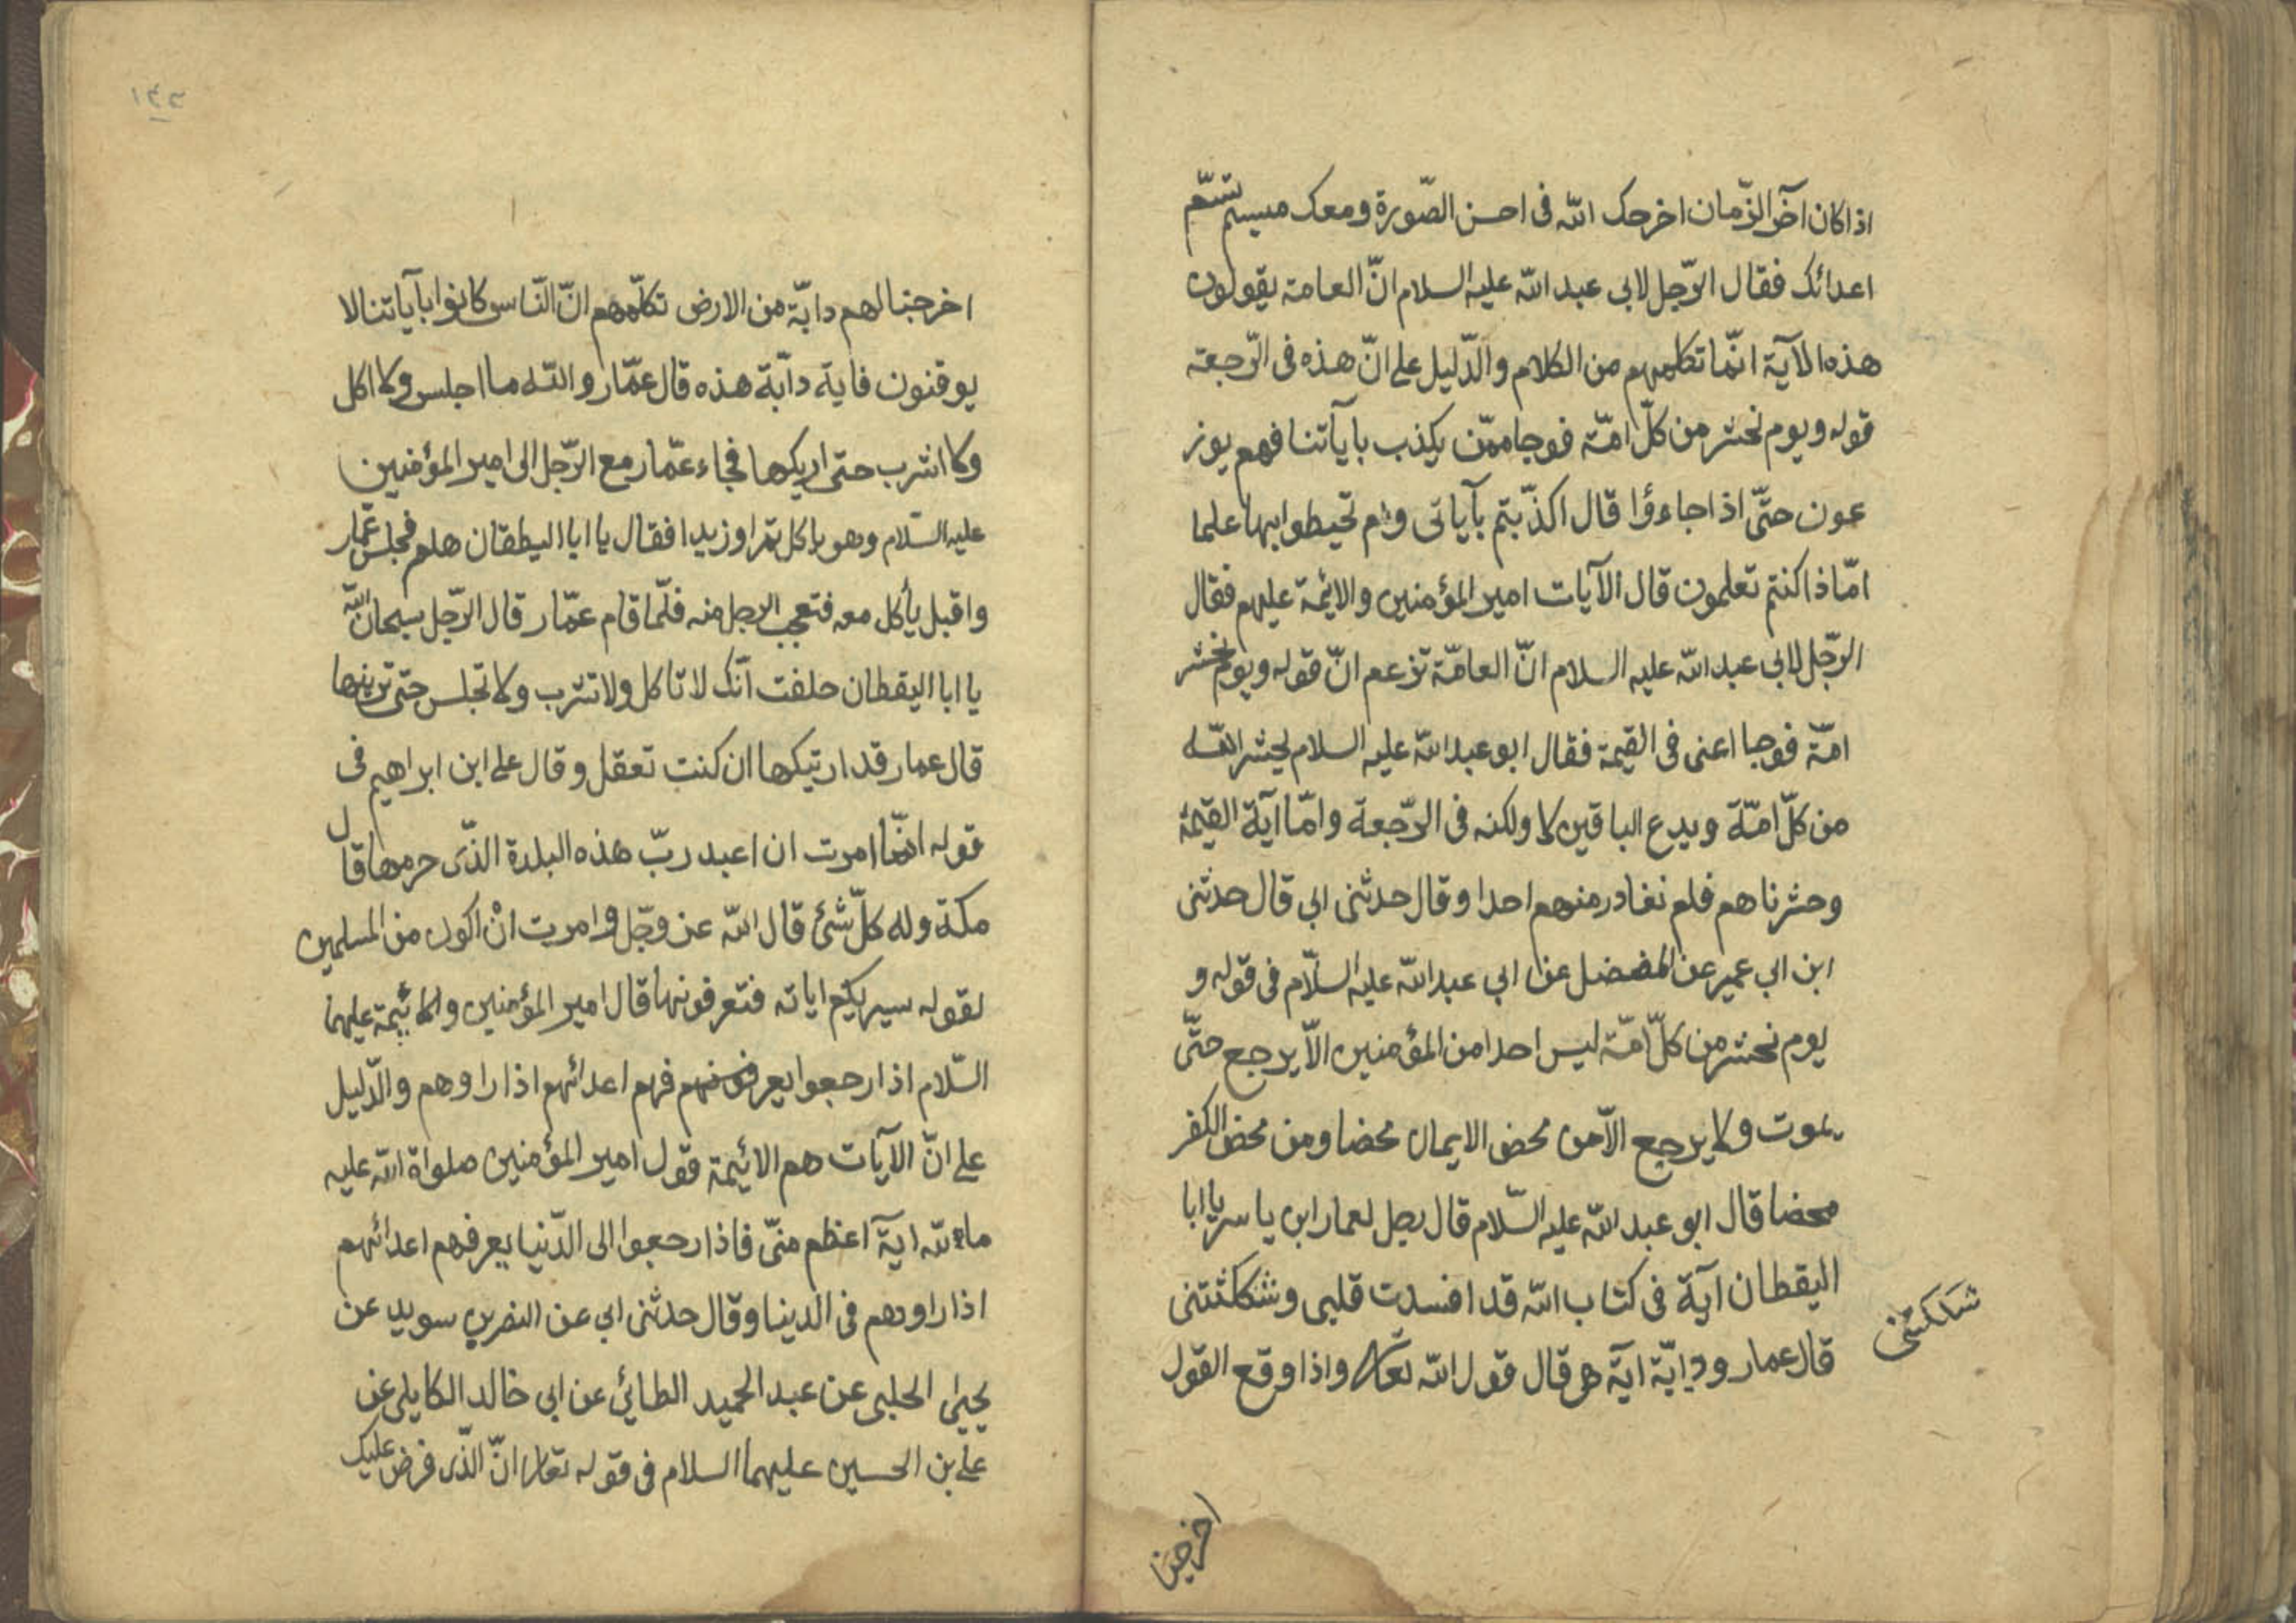 اذا كان آخر الزّمان اخرجك الله فى احسن الصّورة ومعك ميسم تسم
اعدائك فقال الرّجل لابى عبد الله عليه السلام انّ العامة يقولون
هذه الآية انّما تكلمهم من الكلام والدّليل على انّ هذه فى الرّجعة
قوله ويوم نحشر من كلّ امّة فوجا ممّن يكذب بايآتنا فهم يوز
عون حتّى اذا جاءؤا قال اكذّبتم بآياتى ولم تحيطوا بها علما
امّاذا كنتم تعلمون قال الآيات امير المؤمنين والائمة عليهم فقال
الرّجل لابى عبد الله عليه السلام انّ العامّة تزعم انّ قوله ويوم نحشر
امّة فوجا اعنى فى القيمة فقال ابو عبد الله عليه السلام يحشر الله
من كلّ امّة ويدع الباقين لا ولكنه فى الرّجعة وامّا آية القيمة
وحشرناهم فلم نغادر منهم احدا وقال حدثنى ابي قال حدثنى
ابن ابي عمير عن المفضل عن ابي عبد الله عليه السلّام فى قوله و
يوم نحشر من كلّ امّة ليس احدا من المؤمنين الاّ يرجع حتّى
يموت ولا يرجع الاّ من محض الايمان محضا ومن محض الكفر
محضا قال ابو عبد الله عليه السّلام قال رجل لعمار ابن ياسر يا ابا
اليقطان آية فى كتاب الله قد افسدت قلبى وشككثتنى
شككتنى
قال عمار وداية آية هى قال قول الله تعالى واذا وقع القول
اخرجنا
١٤٢
اخرجنا لهم دابّة من الارض تكلّمهم انّ النّاس كانوا بآياتنا لا
يوقنون فاية دآبة هذه قال عمّار والله ما اجلس ولا اكل
ولا اشرب حتى اريكها فجاء عمّار مع الرّجل الى امير المؤمنين
عليه السّلام وهو ياكل تمرا وزبدا فقال يا ابا اليطقان هلم فجلس عمّار
واقبل يأكل معه فتعجب الرجل منه فلّما قام عمّار قال الرّجل سبحان الله
يا ابا اليقطان حلفت انّك لا تاكل ولا تشرب ولا تجلس حتى ترينها
قال عمار قد اريتكها ان كنت تعقل وقال على ابن ابراهيم فى
قوله انّما امرت ان اعبد ربّ هذه البلدة الذّى حرمها قال
مكة وله كلّ شئ قال الله عز وجّل وامرت انْ اكون من المسلمين
لقوله سيريكم اياته فتعرفونها قال امير المؤمنين والائيمة عليهما
السّلام اذا رجعوا يعرفونهم فهم اعدائهم اذا راوهم والدّليل
على انّ الآيات هم الائيمة قول امير المؤمنين صلواة الله عليه
ما لله اية اعظم منّى فاذا رجعوا الى الدّنيا يعرفهم اعدائهم
اذا راودهم فى الدينا وقال حدثنى ابي عن النضر بن سويد عن
يحيىٰ الحلبى عن عبد الحميد الطائي عن ابى خالد الكابلى عن
على بن الحسين عليهما السلام فى قوله تعالى انّ الذّى فرض عليك